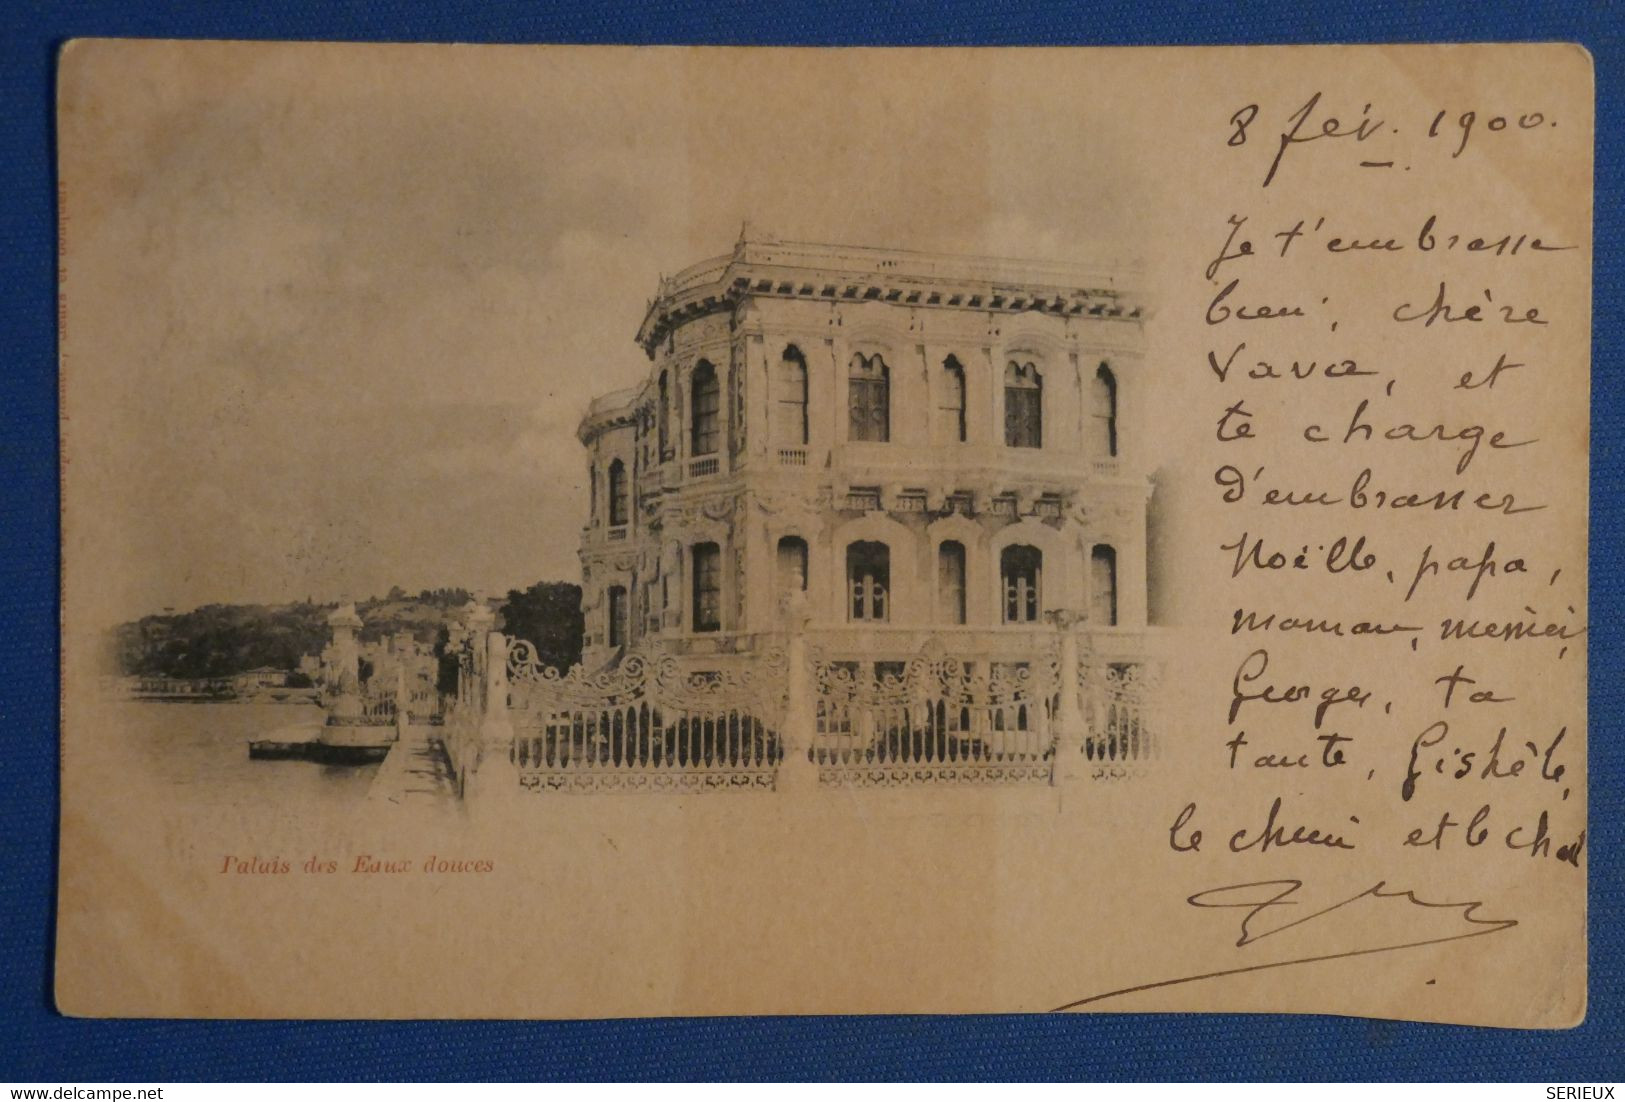 8 fév. 1900.
Je t'embrasse
bien, chère
Vava, et
te charge
d'embrasser
Noëlle, papa,
maman,
Georges, ta
tante,
le et le
Palais des Eaux douces
www.delcampe.net
SERIEUX